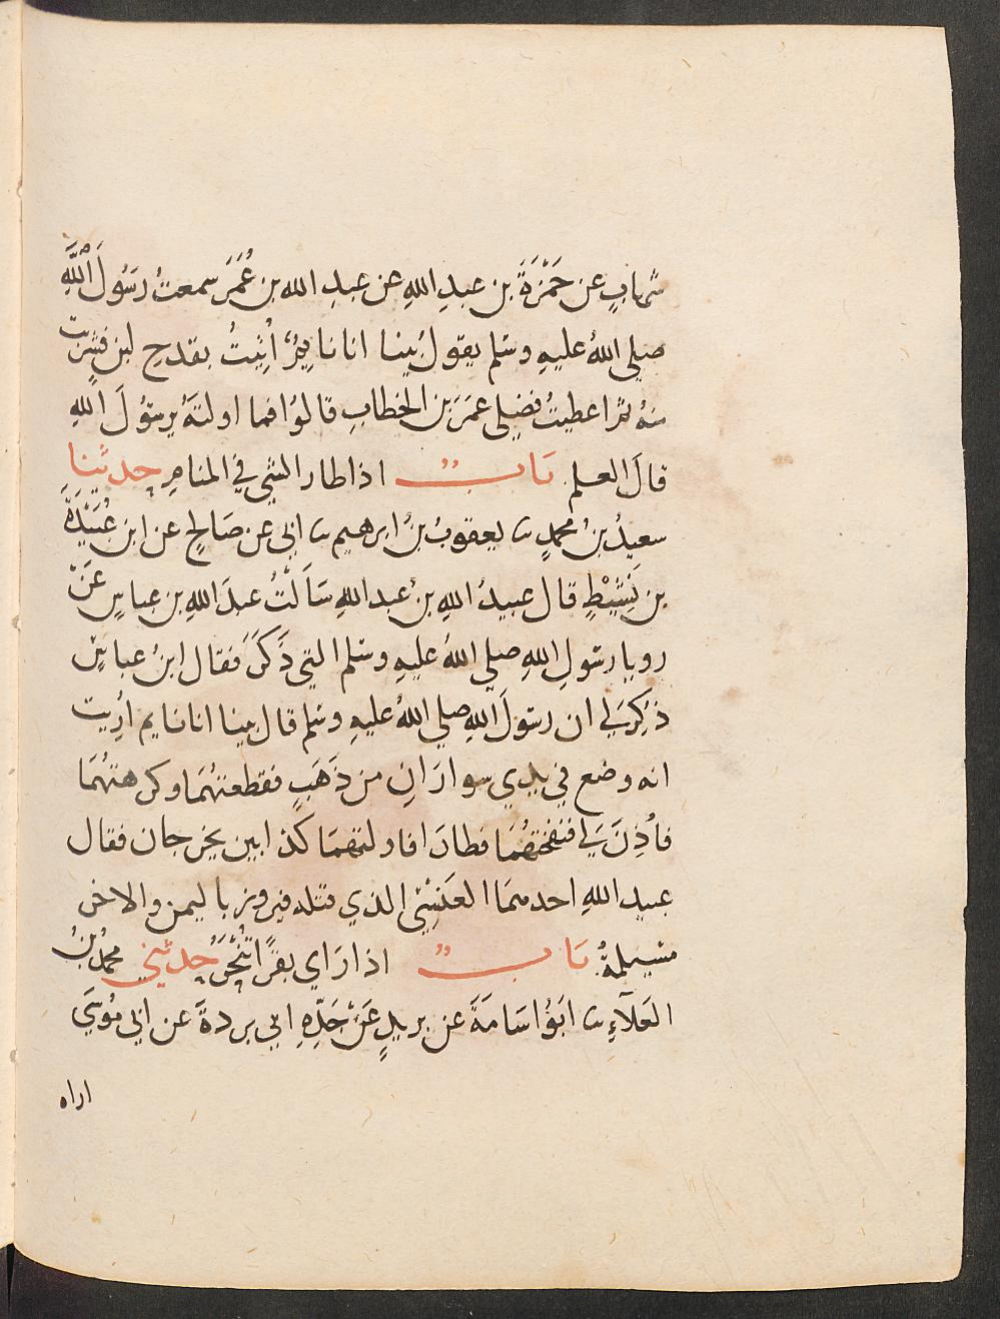 شهابٍ عن حَمْزَةَ بن عبدِ اللهِ عن عبدِ الله بن عُمَرَ سمعتُ رَسُولَ اللَّهِ
صلي اللهُ عليهِ وسَلم يقول بَينا انا نايمٌ اُتِيتُ بقدحِ لبن فشربت
منهُ ثم اعطيتُ فضلِي عمَرَ بن الخطابِ قالوُا فما اولتهُ يرسوُلَ اللهِ
قالَ العلم بَابٌ اذا طار الشي في المنامِ حدثَينا
سعيدُ بنُ محمدٍ ثنا يعقوبُ بنُ ابرهيم ثنا ابي عن صَالحٍ عن ابن عُبَيْدَةَ
بن نَشِيْطٍ قال عبيدُ اللهِ بنُ عبد اللهِ سَاَلْتُ عبدَ اللهِ بن عباسٍ عَنْ
رويا رسولِ اللهِ صلي اللهُ عليهِ وسَلم التي ذَكَرَ فقال ابنُ عباسٍ
ذُكِرَ لي ان رسولَ اللهِ صلي اللهُ عليهِ وسَلم قال بينا انا نايم اُرِيت
انه وضع في يدي سوارَانِ من ذَهَبٍ فقطعتهُمَا وكرهتهُمَا
فاُذِنَ لي فنفختهُمَا فطارَا فاولتهمَا كذابين يخرجان فقال
عبيد اللهِ احدهمَا العَنْسِيّ الذي قتله فيروز باليمن والاخر
مسَيلمةُ بَابٌ اذا رَاي بقرًا تُنْحَرُ حدثني محمدُ بنُ
العَلآءِ ثنا ابَوُ اسَامَةَ عن بريدٍ عَنْ جَدِّهِ ابي بردةَ عن ابي مُوسَي
اراه